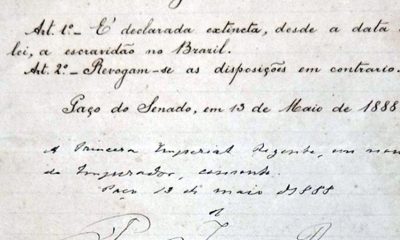 Art. 1º— É declarada extincta, desde a data
lei, a escravidão no Brazil.
Art. 2º— Revogam-se as disposições em contrario.
Paço do Senado, em 13 de Maio de 1888
A Princesa Imperial Regente, em nom
do Imperador, consente.
Paço 13 de maio de 1888